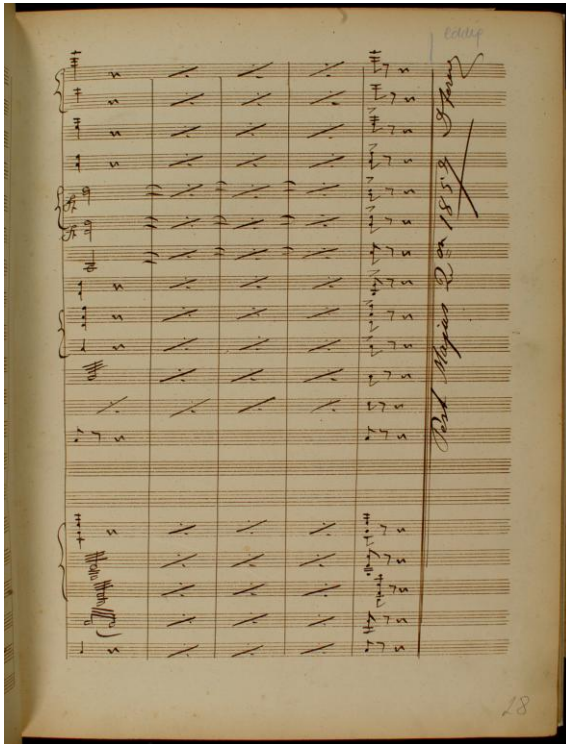 eddig
Pest Majus 2án 1859
28